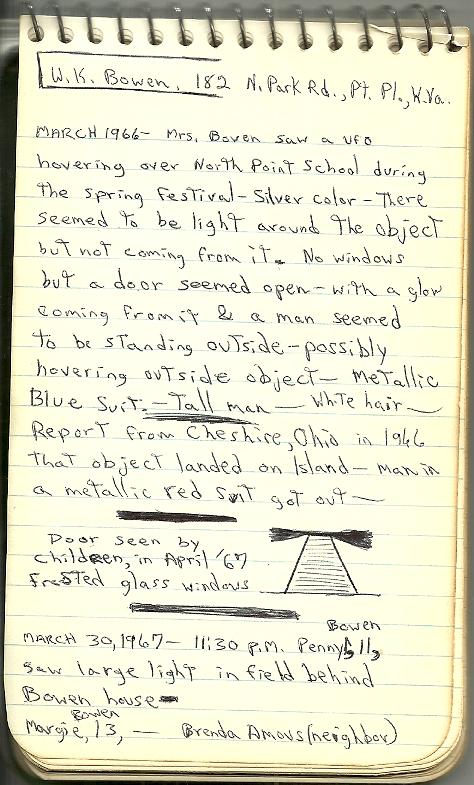 W.K. Bowen, 182 N. Park Rd., Pt. Pl., W.Va.
MARCH 1966- Mrs. Bowen saw a UFO
hovering over North Point School during
the spring Festival - Silver color - There
seemed to be light around the object
but not coming from it. No windows
but a door seemed open - with a glow
coming from it & a man seemed
to be standing outside - possibly
hovering outside object - Metallic
Blue Suit. - Tall man - White hair -
Report from Cheshire, Ohio in 1966
that object landed on Island - man in
a metallic red suit got out -
Door seen by
children, in April '67
Frosted glass windows
MARCH 30, 1967 - 11:30 P.M. Penny Bowen, 11,
saw large light in field behind
Bowen house -
Margie Bowen, 13, - Brenda Amos (neighbor)